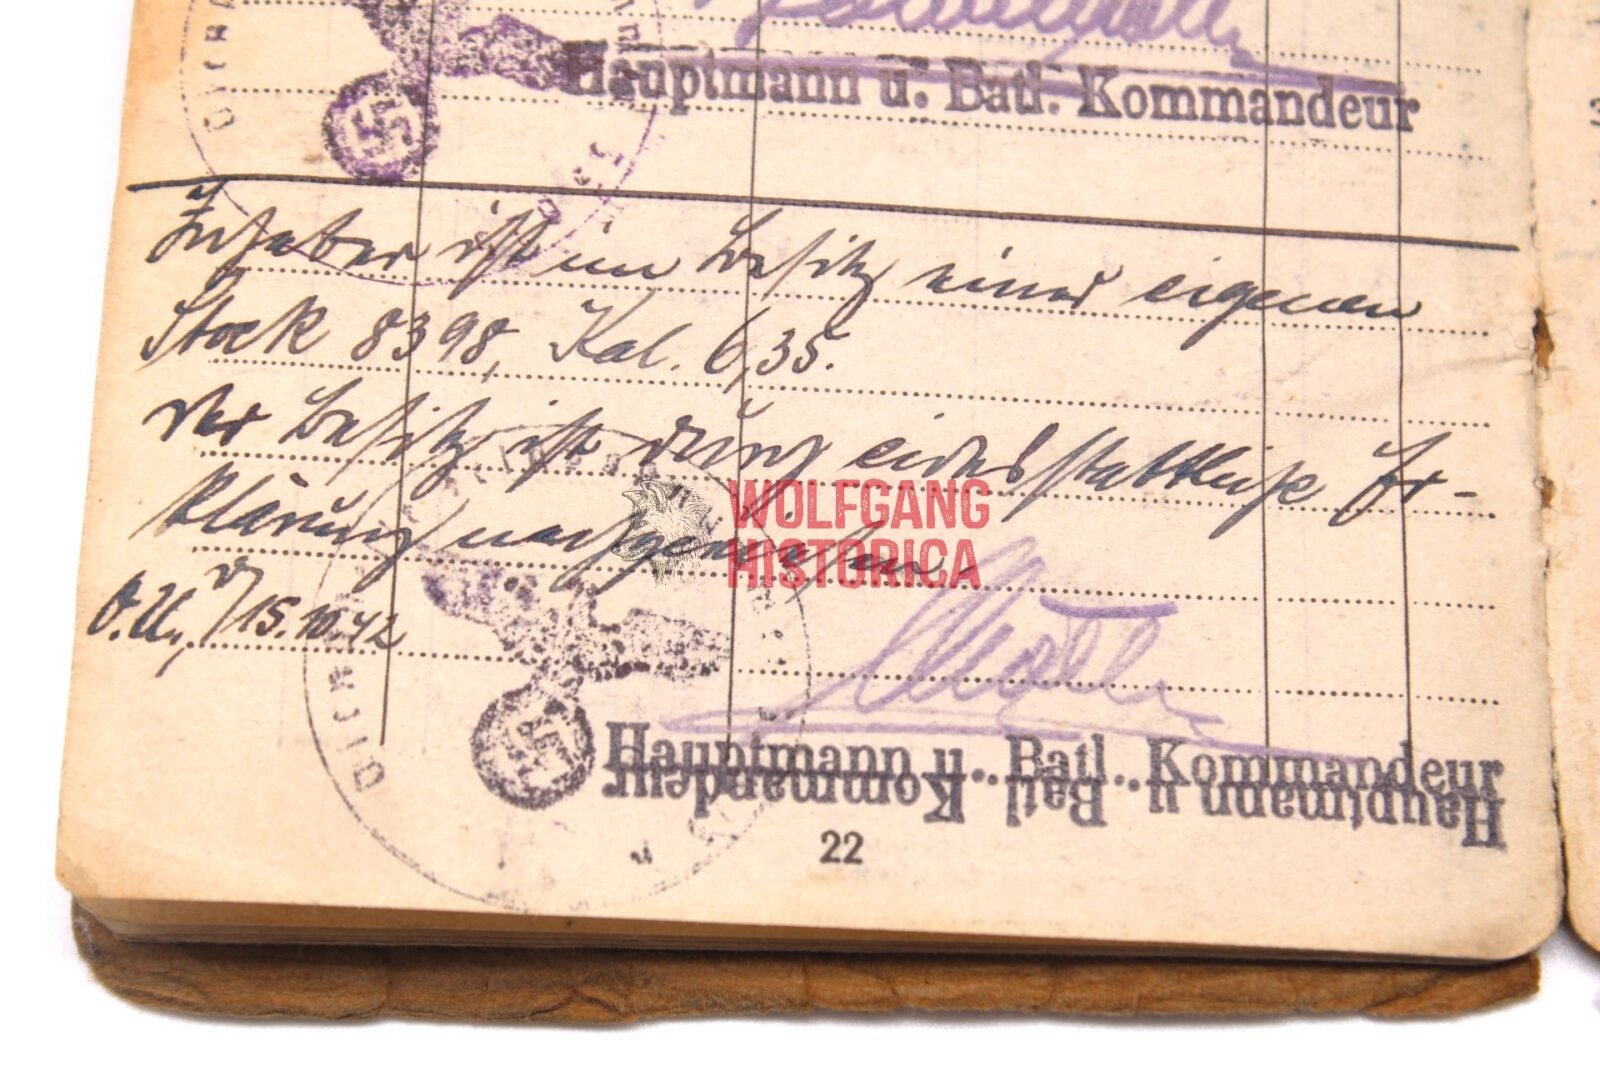 Hauptmann u. Batl. Kommandeur
Inhaber ist im Besitz einer eigenen
Stock 8398, Kal. 6,35.
Der Besitz ist durch eidesstattliche Er-
klärung nachgewiesen.
O.U., d/15.10.42
WOLFGANG
HISTORICA
Hauptmann u. Batl. Kommandeur
Hauptmann u. Batl. Kommandeur
22